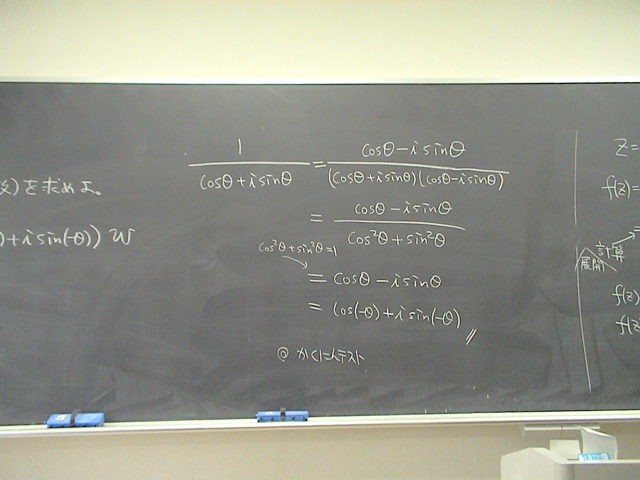 を求めよ。
+i sin(-θ)) w
1/(cosθ+i sinθ) = (cosθ-i sinθ)/((cosθ+i sinθ)(cosθ-i sinθ))
= (cosθ-i sinθ)/(cos²θ+sin²θ)
cos²θ+sin²θ=1
= cosθ-i sinθ
= cos(-θ)+i sin(-θ) //
@ かくにんテスト
z=
f(z)=
計算
展開
f(z)
f(z